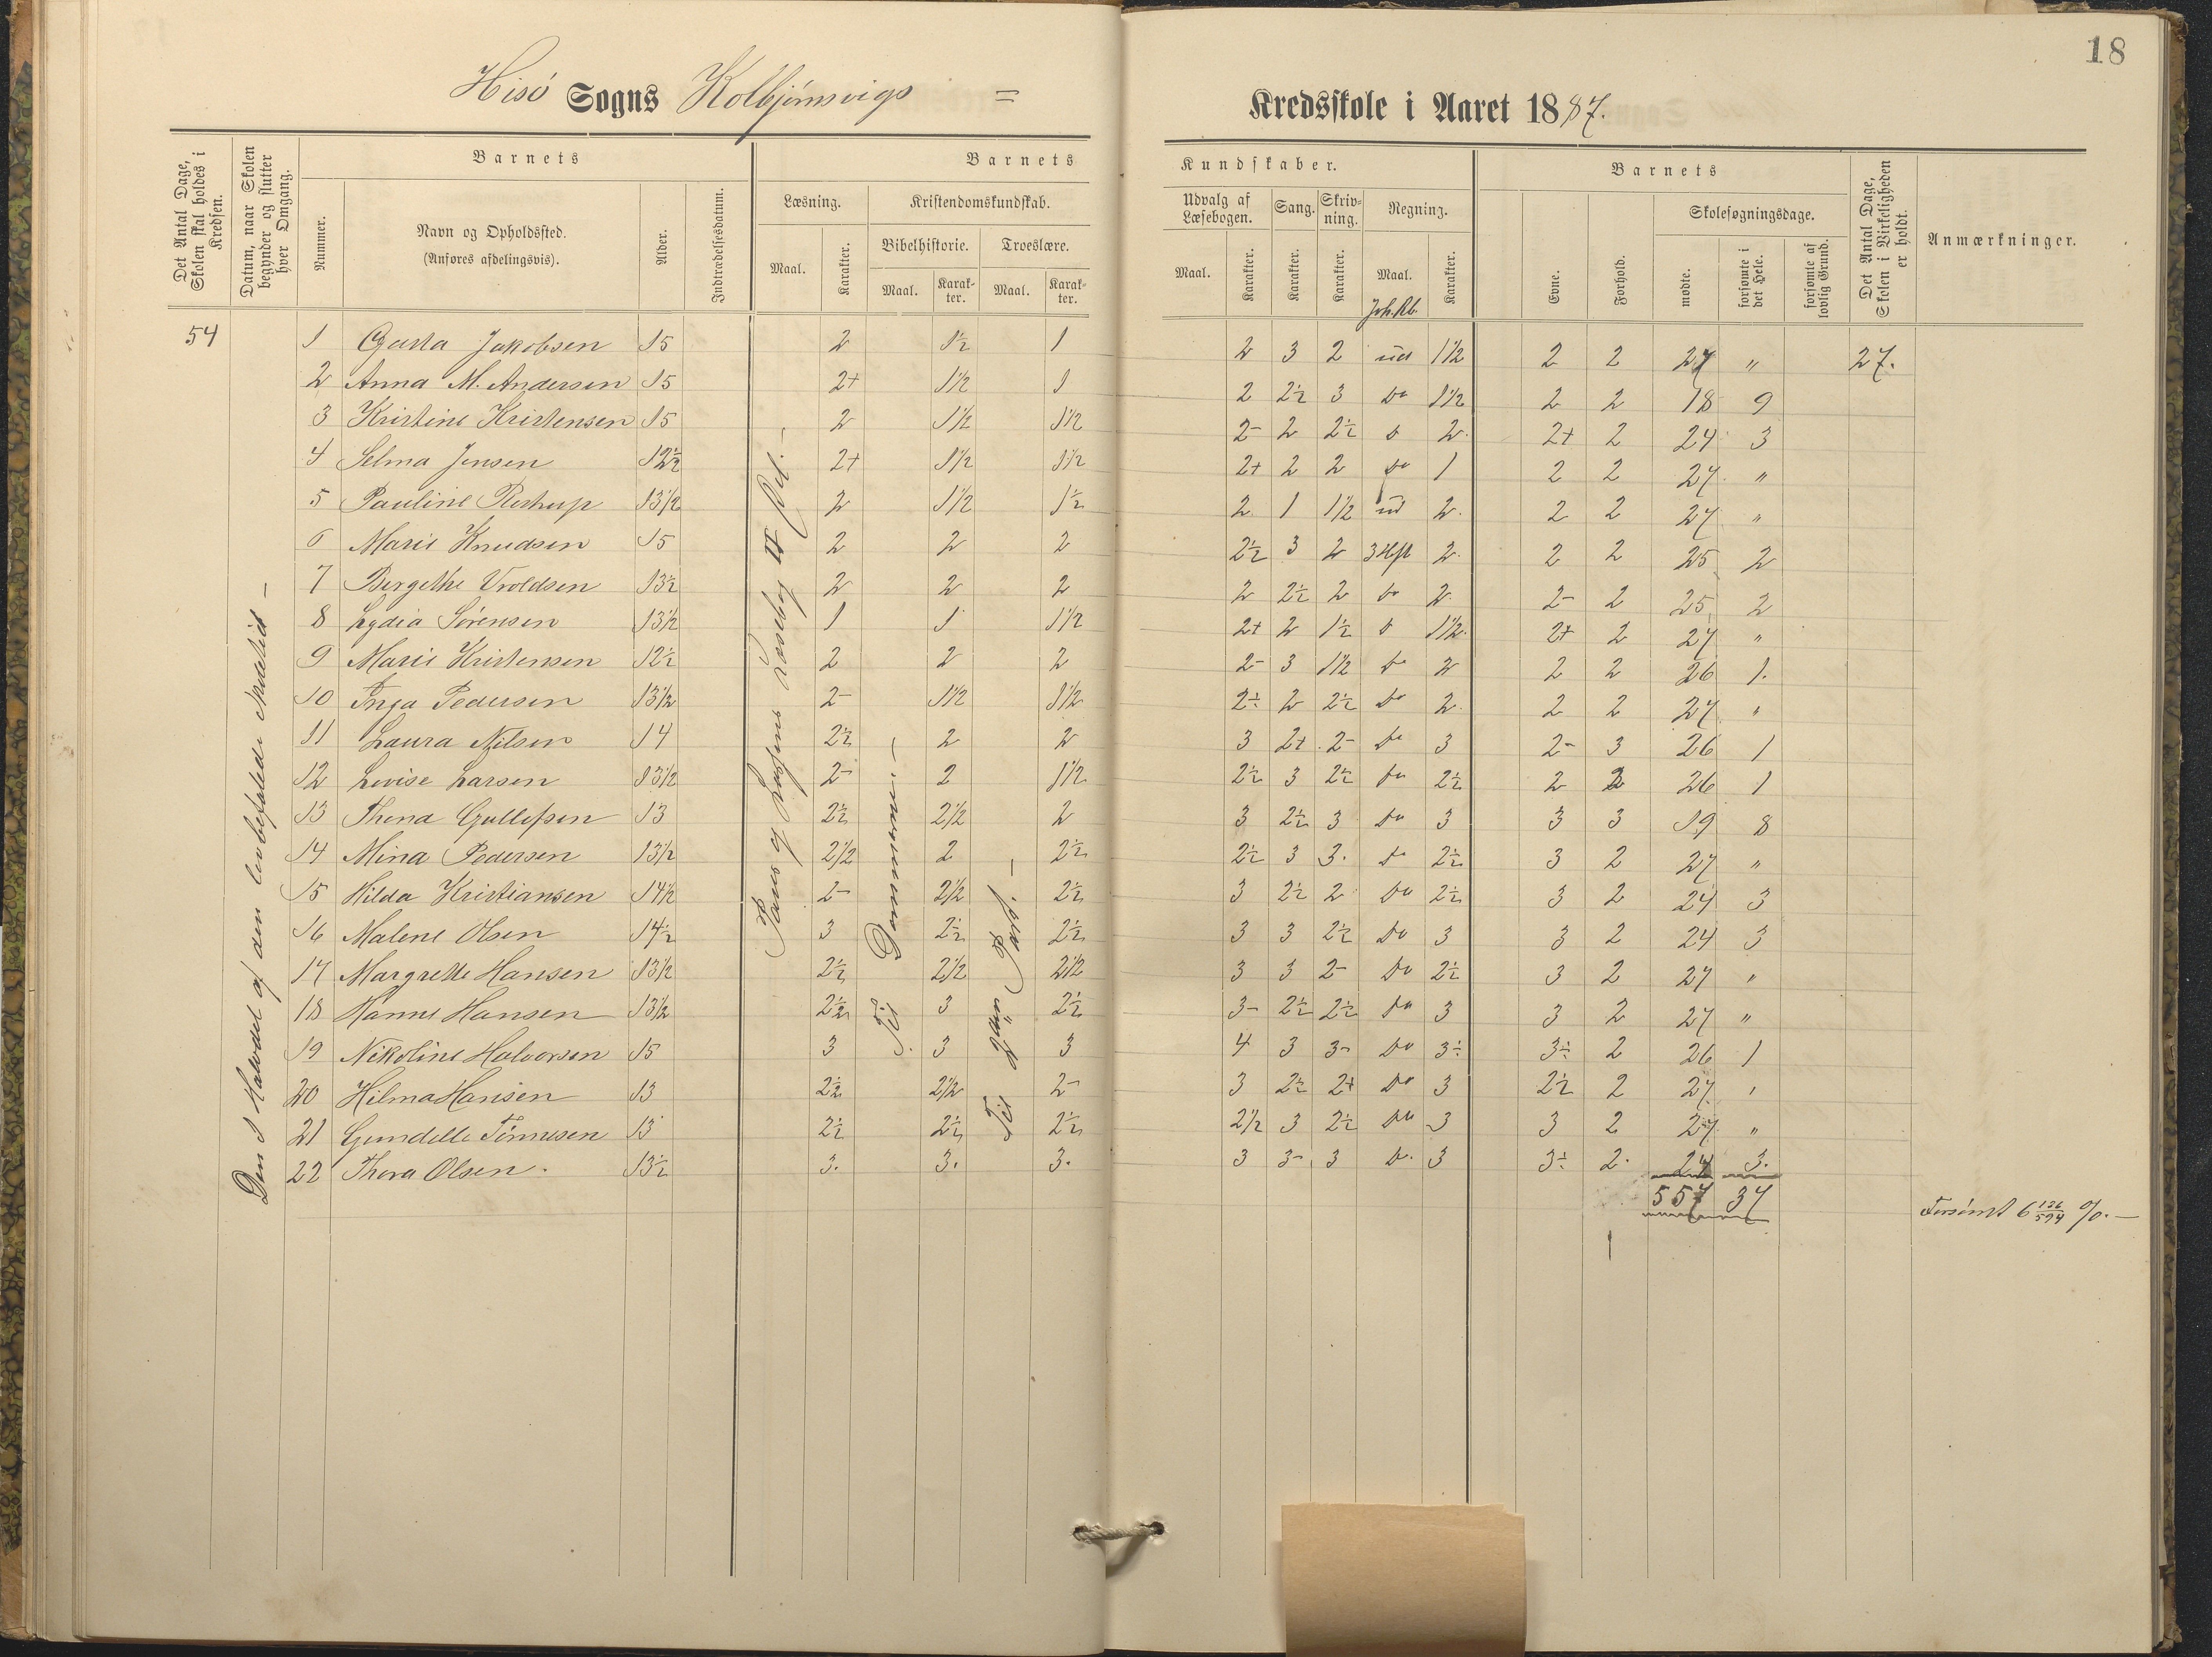 18
Hisö Sogns Kolbjörnsvigs = Kredsskole i Aaret 1887.
Det Antal Dage, Skolen skal holdes i Kredsen.
Datum, naar Skolen begynder og slutter hver Omgang.
Barnets
Nummer.
Navn og Opholdssted.
(Anføres afdelingsvis).
Alder.
Indtrædelsesdatum.
Barnets Kundskaber.
Læsning.
Maal.
Karakter.
Kristendomskundskab.
Bibelhistorie.
Maal.
Karakter.
Troeslære.
Maal.
Karakter.
Udvalg af Læsebogen.
Maal.
Karakter.
Sang.
Karakter.
Skrivning.
Karakter.
Regning.
Maal.
Joh. Rb.
Karakter.
Barnets
Evne.
Forhold.
Skolesøgningsdage.
mødte.
forsømte i det Hele.
forsømte af lovlig Grund.
Det Antal Dage, Skolen i Virkeligheden er holdt.
Anmærkninger.
Den I Halvdel af den lovbefalede Skoletid –
Til Dommerne –
54 1 Gusta Jakobsen 15 2 1½ 1 2 3 2 ud 1½ 2 2 27 " 27.
2 Anna M. Andersen 15 2+ 1½ 1 2 2½ 3 do 1½ 2 2 18 9
3 Kristine Kristensen 15 2 1½ 1½ 2- 2 2½ do 2. 2+ 2 24 3
4 Selma Jensen 12½ 2+ 1½ 1½ 2+ 2 2 do 1 2 2 27 "
5 Pauline Restrup 13½ 2 1½ 1½ 2 1 1½ ud 2. 2 2 27 "
6 Marie Knudsen 15 2 2 2 2½ 3 2 3 Hft 2. 2 2 25 2
7 Bergethe Vroldsen 13½ 2 2 2 2 2½ 2 do 2. 2- 2 25 2
8 Lydia Sörensen 13½ 1 1 1½ 2+ 2 1½ do 1½. 2+ 2 27 "
9 Marie Kristensen 12½ 2 2 2 2- 3 1½ do 2 2 2 26 1.
10 Inga Pedersen 13½ 2- 1½ 1½ 2½ 2 2½ do 2. 2 2 27 "
11 Laura Nilsen 14 2½ 2 2 3 2+ 2- do 3 2- 3 26 1
12 Lovise Larsen 13½ 2- 2 1½ 2½ 3 2½ do 2½ 2 2 26 1
13 Thena Gullessen 13 2½ 2½ 2 3 2½ 3 do 3 3 3 19 8
14 Mina Pedersen 13½ 2½ 2 2½ 2½ 3 3. do 2½ 3 2 27 "
15 Hilda Kristiansen 14½ 2- 2½ 2½ 3 2½ 2 do 2½ 3 2 24 3
16 Malene Olsen 14½ 3 2½ 2½ 3 3 2½ do 3 3 2 24 3
17 Margrethe Hansen 13½ 2½ 2½ 2½ 3 3 2- do 2½ 3 2 27 "
18 Hanne Hansen 13½ 2½ 3 2½ 3- 2½ 2½ do 3 3 2 27 "
19 Nikoline Halvorsen 15 3 3 3 4 3 3- do 3÷ 3÷ 2 26 1
20 Hilma Hansen 13 2½ 2½ 2- 3 2½ 2+ do 3 2½ 2 27 "
21 Gundelle Tönnesen 13 2½ 2½ 2½ 2½ 3 2½ do 3 3 2 27 "
22 Thora Olsen. 13½ 3. 3. 3. 3 3- 3 do. 3 3÷ 2. 24 3.
557 37
Forsömt 6 136/594 %. –